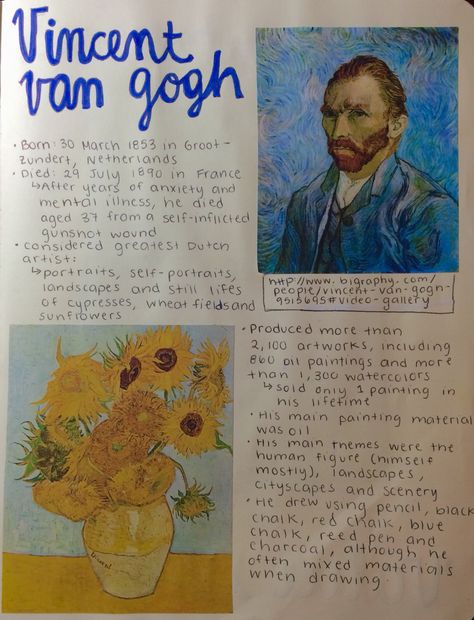 Vincent
van gogh
• Born: 30 March 1853 in Groot-
Zundert, Netherlands
• Died: 29 July 1890 in France
↳After years of anxiety and
mental illness, he died
aged 37 from a self-inflicted
gunshot wound
• considered greatest Dutch
artist:
↳portraits, self-portraits,
landscapes and still lifes
of cypresses, wheatfields and
sunflowers
http://www.biography.com/
people/vincent-van-gogh-
9515695#video-gallery
• Produced more than
2,100 artworks, including
860 oil paintings and more
than 1,300 watercolors
↳ sold only 1 painting in
his lifetime
• His main painting material
was oil
• His main themes were the
human figure (himself
mostly), landscapes,
cityscapes and scenery
• He drew using pencil, black
chalk, red chalk, blue
chalk, reed pen and
charcoal, although he
often mixed materials
when drawing.
Vincent